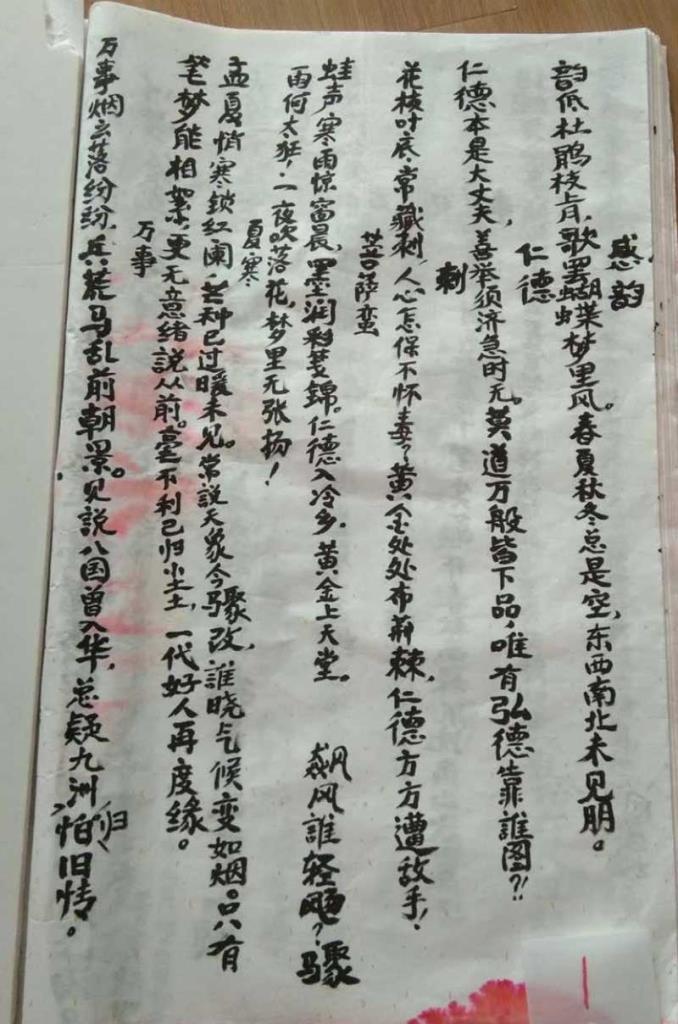 感韵
韵低杜鹃枝上月，歌罢蝴蝶梦里风。春夏秋冬总是空，东西南北未见朋。
仁德
仁德本是大丈夫，善举须济急时无。莫道万般皆下品，唯有弘德靠谁图？！
刺
花枝叶底常藏刺，人心怎保不怀毒？黄金处处布荆棘，仁德方方遭敌手！
菩萨蛮
蛙声寒雨惊窗晨，墨润彩笺錦。仁德入冷乡，黄金上天堂。 飙风誰轻飏？骤
雨何太狂，一夜吹落花，梦里无张扬！
夏寒
孟夏悄寒锁红阑，芒种已过暖未见。常説天象今骤改，誰晓气候变如烟。只有
笔梦能相絮，更无意绪説从前。毫不利己归尘土，一代好人再度缘。
万事
万事烟云落纷纷，兵荒马乱前朝景。见説八国曾入华，总疑九洲怕旧情。
归
1